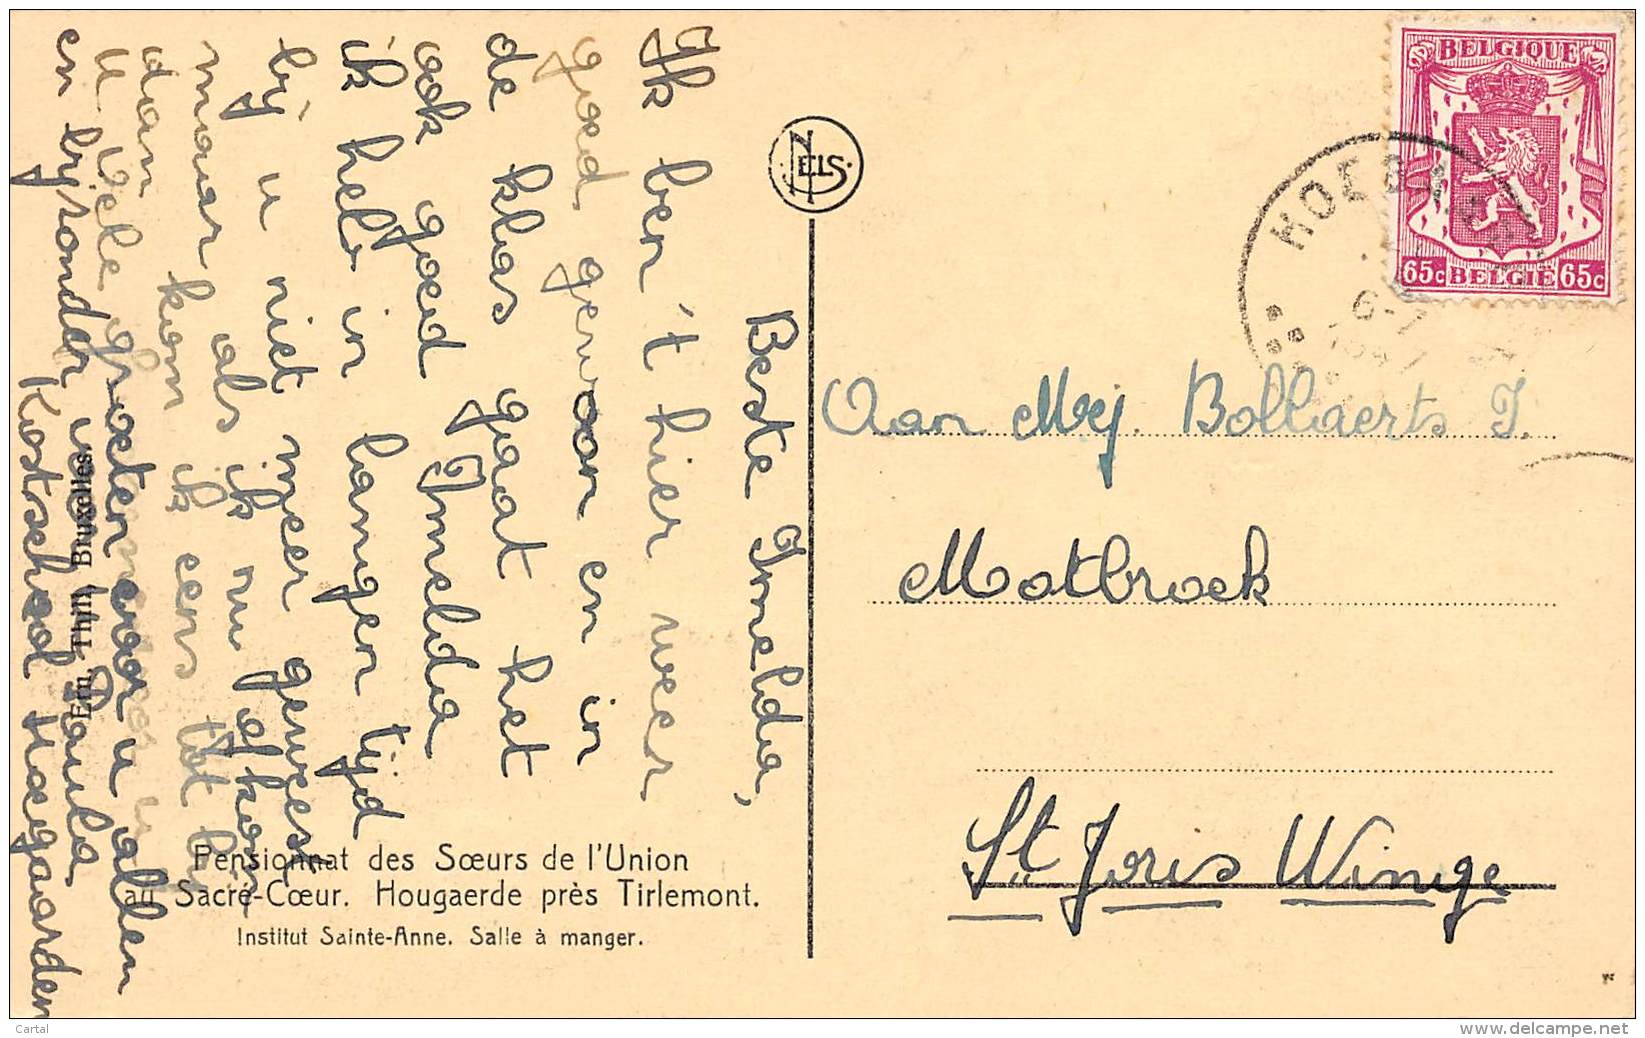 Beste Imelda,
Ik ben 't hier weer
goed gewoon en in
de klas gaat het
ook goed Imelda
ik heb in langen tijd
bij u niet meer geweest
maar als ik nu afkom
dan kom ik eens tot bij
u
vele groeten voor u allen
en bijzonder voor
Paula
Kostschool Hoegaarden
NELS
Em. Thill, Bruxelles.
Pensionnat des Sœurs de l'Union
au Sacré-Cœur. Hougaerde près Tirlemont.
Institut Sainte-Anne. Salle à manger.
BELGIQUE
65c BELGIE 65c
6-7
Aan Mej. Bollaerts I.
Motbroek
St Joris Winge
Cartal
www.delcampe.net